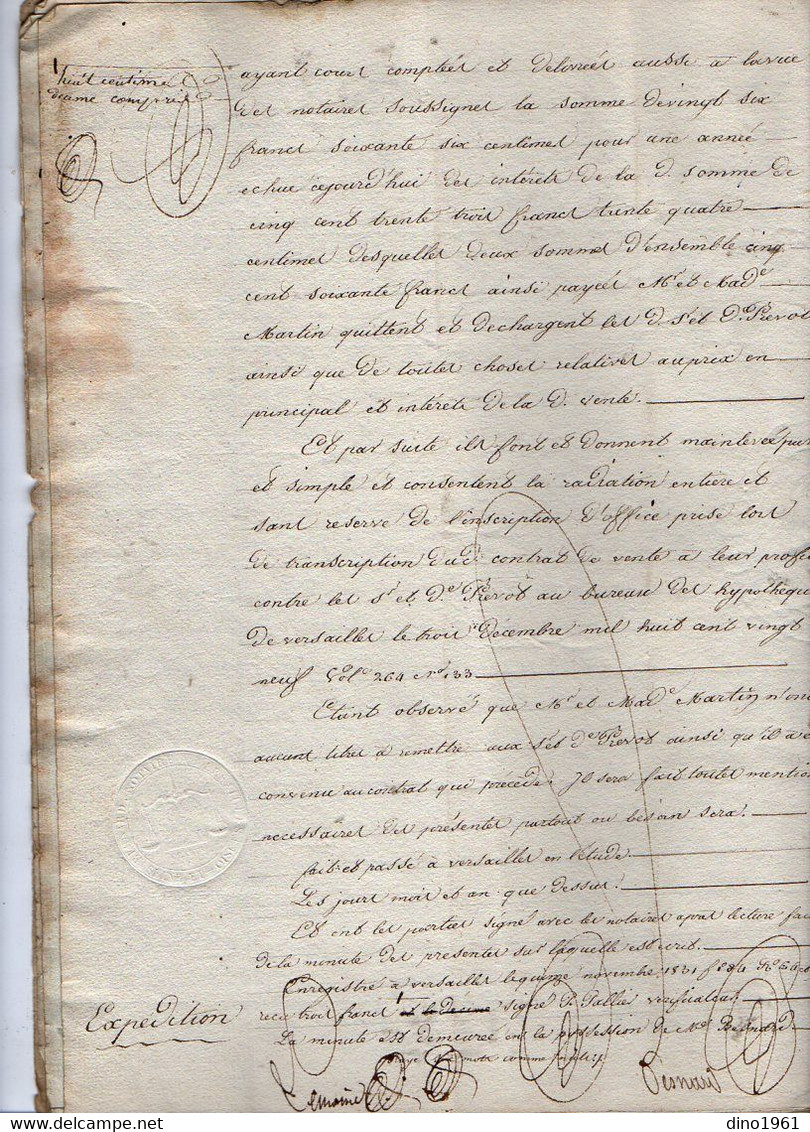 huit centimes
decime compris
ayant cours comptées et delivrées aussi à la vue
des notaires soussignés la somme de vingt six
francs soixante six centimes pour une année
echue cejourd'hui des intérêts de la d. somme de
cinq cent trente trois francs trente quatre
centimes desquelles deux sommes d'ensemble cinq
cent soixante francs ainsi payées Mr et Made
Martin quittent et dechargent les d. Sr et De Prevot
ainsi que de toutes choses relatives au prix en
principal et intérêts de la d. vente.
Et par suite ils font et donnent mainlevée pure
et simple et consentent la radiation entière et
sans reserve de l'inscription d'office prise lors
de transcription dud. contrat de vente à leur profit
contre les Sr et De Prevot au bureau des hypothèques
de versailles le trois Décembre mil huit cent vingt
neuf Vole 264 No 133
Etant observé que Mr et Made Martin n'ont
aucuns titres à remettre aux Sr et De Prevot ainsi qu'il a été
convenu au contrat qui précède. Il sera fait toutes mentions
necessaires des présentes partout où besoin sera.
fait et passé à versailles en l'étude
Les jours mois et an que dessus.
Et ont les parties signé avec les notaires après lecture faite
de la minute des presentes sur laquelle est écrit.
Enregistré à versailles le quinze novembre 1831 fo
recu trois francs et le decime signé P. Pallu verificateur
La minute est demeurée en la possession de Me Besnard
Rayé mots comme nuls
Expédition
Lemoine
Besnard
dino1961